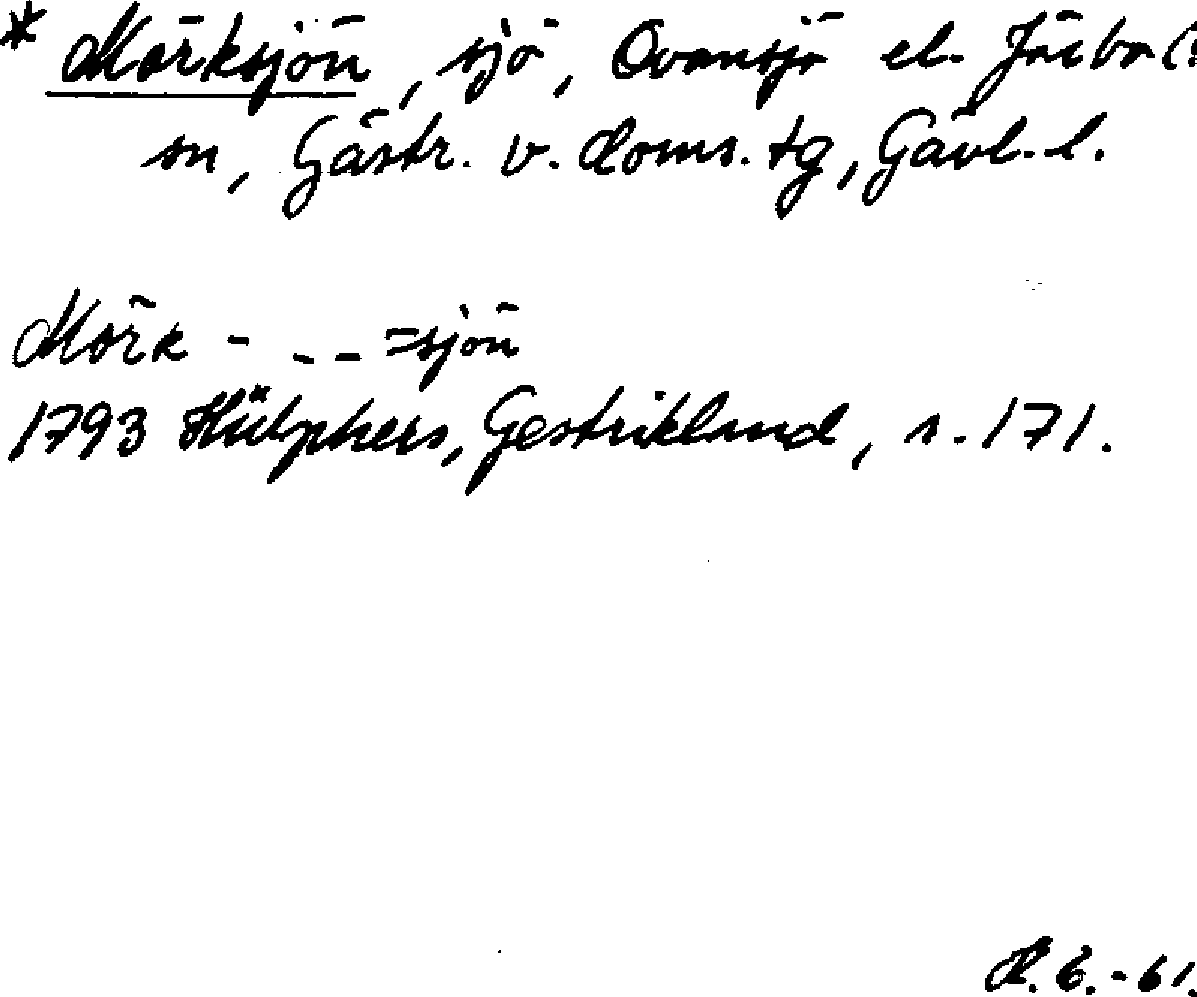 * Mörksjön, sjö, Ovansjö el. Järbo (?
sn, Gästr. v. doms. tg, Gävl. l.
Mörk - - - =sjön
1793 Hülphers, Gestrikland, s. 171.
H. E. -61.